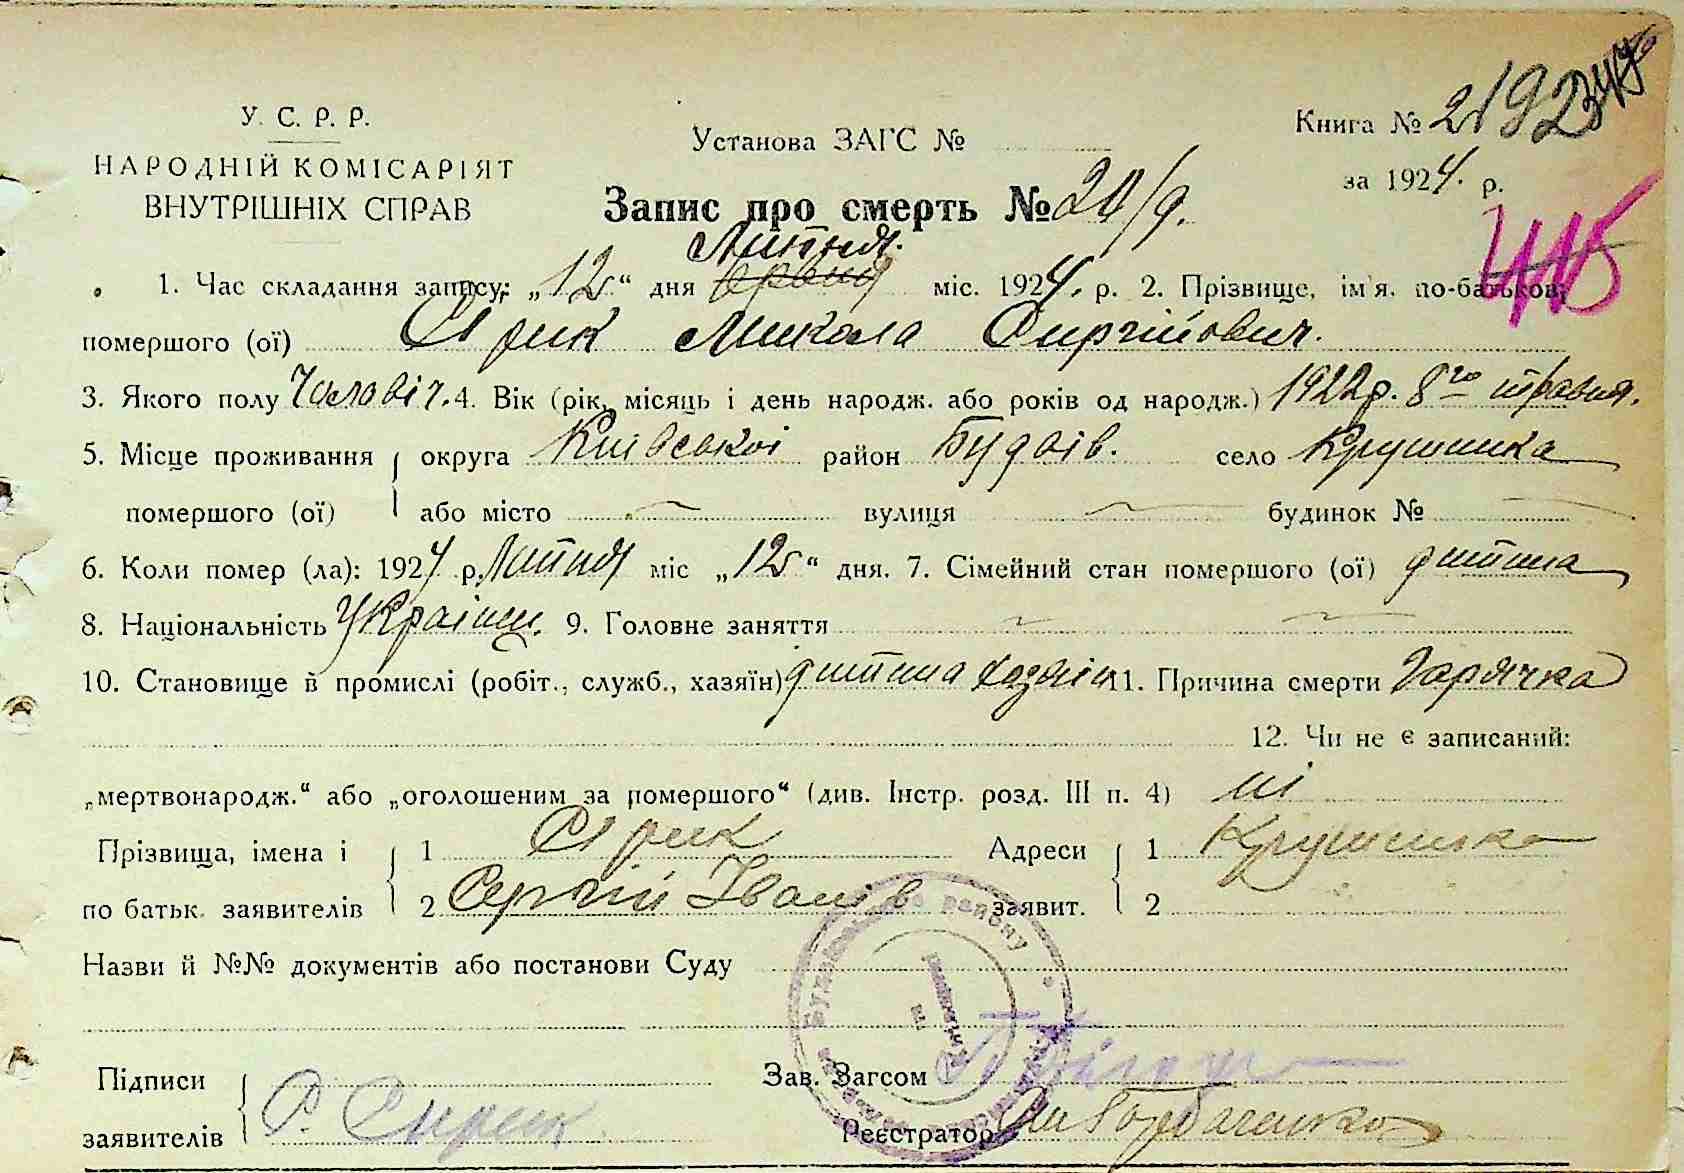 У. С. Р. Р.
НАРОДНІЙ КОМІСАРІЯТ
ВНУТРІШНІХ СПРАВ
Установа ЗАГС №
Книга №
за 1924 р.
Запис про смерть №
Липня.
1. Час складання запису: „12“ дня міс. 1924. р. 2. Прізвище, ім'я, по-батькові
помершого (ої) Сірик Микола Сиргійович.
3. Якого полу Чоловіч. 4. Вік (рік, місяць і день народж. або років од народж.) 1922 р. 8го травня.
5. Місце проживання округа Київської район Будаїв. село Крушинка
помершого (ої) або місто — вулиця — будинок № —
6. Коли помер (ла): 1924 р. Липня міс „12“ дня. 7. Сімейний стан помершого (ої) дитина
8. Національність Україн. 9. Головне заняття —
10. Становище в промислі (робіт., служб., хазяїн) дитина хазяїн 11. Причина смерти Гарячка
12. Чи не є записаний:
„мертвонародж.“ або „оголошеним за помершого“ (див. Інстр. розд. III п. 4) ні
Прізвища, імена і 1 Сірик Адреси 1 Крушинка
по батьк. заявителів 2 Сергій Іванів заявит. 2
Назви й №№ документів або постанови Суду
Підписи Зав. Загсом
заявителів С. Сирик Реєстратор Горбаченко